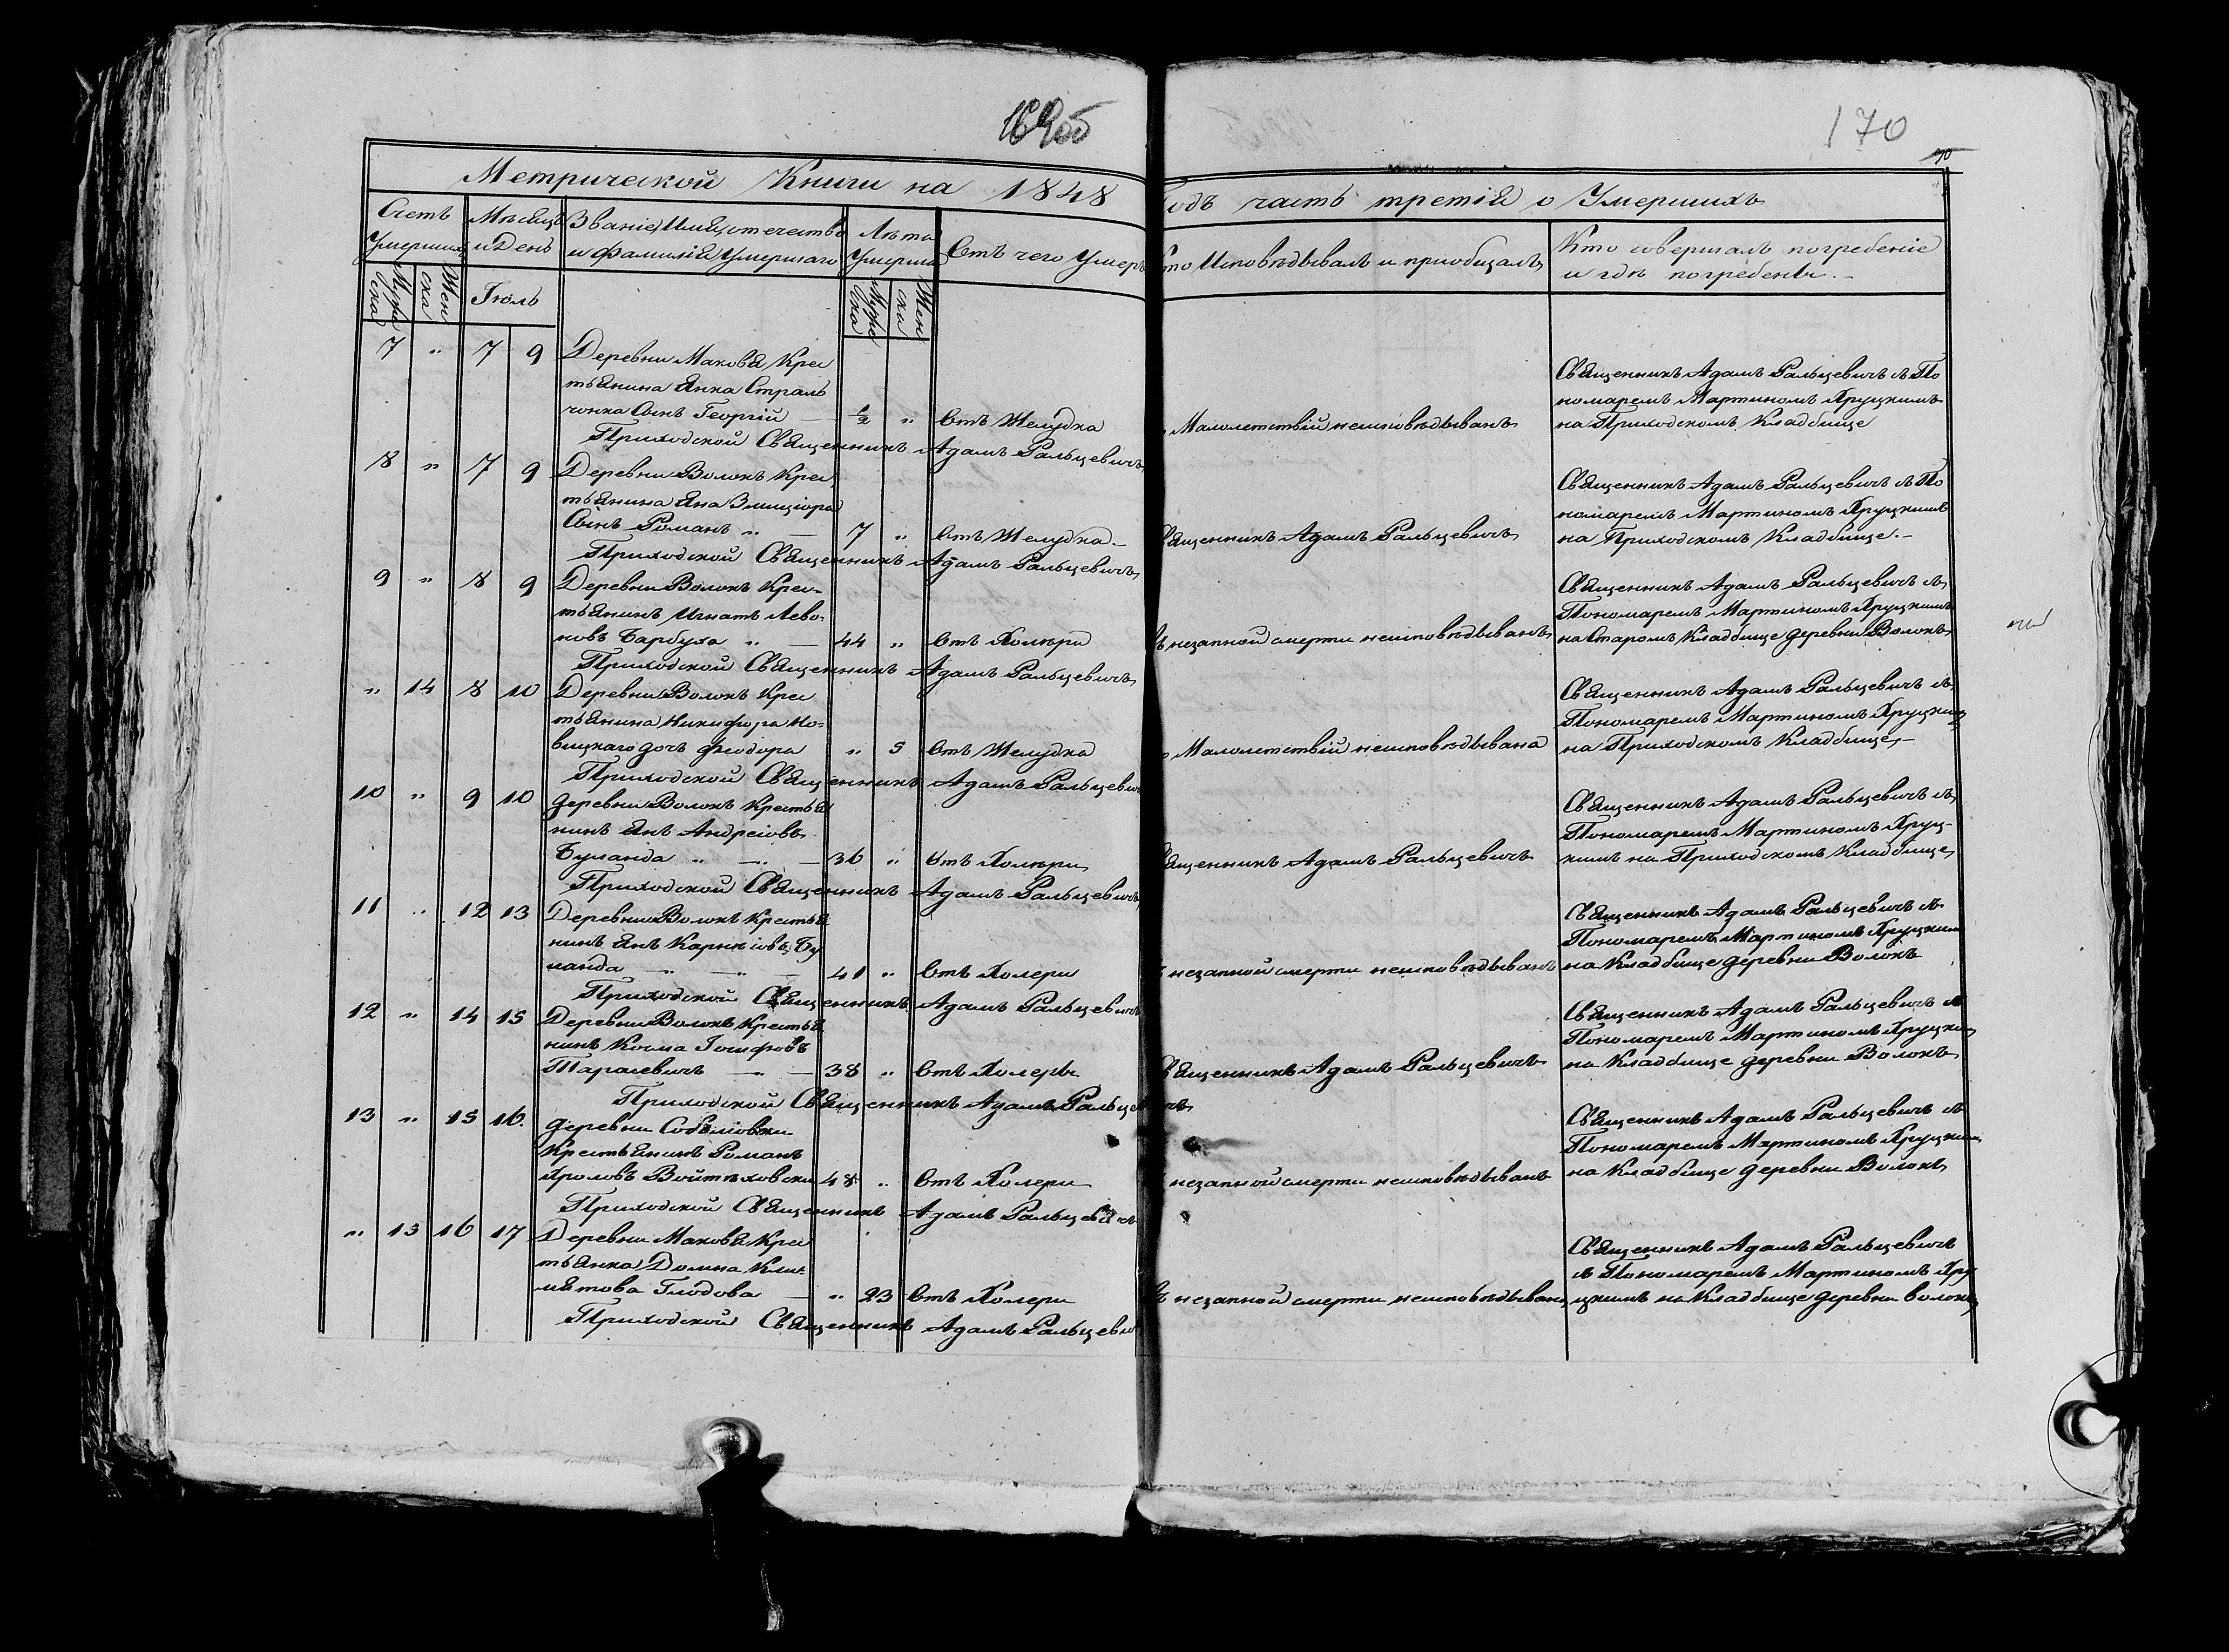 169об
170
Метрической Книги на 1848 Годъ часть третія о Умершихъ
Счетъ Умершихъ
Мѣсяцъ и День
Званіе, Имя, отечество и фамилія Умершаго
Лѣта Умершаго
Отъ чего Умеръ
Кто Исповѣдывалъ и приобщалъ
Кто совершалъ погребеніе и гдѣ погребены.
Мужеска
Женска
Іюль
Мужеска
Женска
7 " 7 9 Деревни Маковья Крес
тьянина Янка Страль
чонка Сынъ Георгій — 1/2 " Отъ Желудка
по Малолетствій неисповѣдыванъ
Священникъ Адамъ Ральцевичъ съ По
номаремъ Мартиномъ Хруцкимъ
на Приходскомъ Кладбище
Приходской Священникъ Адамъ Ральцевичъ
8 " 7 9 Деревни Волокъ Крес
тьянина Яна
Сынъ Романъ " — 7 " Отъ Желудка.
Священникъ Адамъ Ральцевичъ
Священникъ Адамъ Ральцевичъ съ По
номаремъ Мартиномъ Хруцкимъ
на Приходскомъ Кладбище.
Приходской Священникъ Адамъ Ральцевичъ
9 " 8 9 Деревни Волокъ Крес-
тьянинъ Игнатъ Лево-
новъ Барбуха " — 44 " Отъ Холѣри
Въ незапной смерти неисповѣдыванъ
Священникъ Адамъ Ральцевичъ съ
Пономаремъ Мартиномъ Хруцкимъ
на Старомъ Кладбище деревни Волокъ
Приходской Священникъ Адамъ Ральцевичъ
" 14 8 10 Деревни Волокъ Крес
тьянина Никифора Но-
вицкаго дочъ Феодора " 5 Отъ Желудка
по Малолетствій неисповѣдывана
Священникъ Адамъ Ральцевичъ съ
Пономаремъ Мартиномъ Хруцкимъ
на Приходскомъ Кладбище,
Приходской Священникъ Адамъ Ральцевичъ
10 " 9 10 деревни Волокъ Крестья
нинъ Янъ Андреіовъ
Буланда " — " — 36 " Отъ Холѣри
Священникъ Адамъ Ральцевичъ
Священникъ Адамъ Ральцевичъ съ
Пономаремъ Мартиномъ Хруц-
кимъ на Приходскомъ Кладбище,
Приходской Священникъ Адамъ Ральцевичъ
11 " 12 13 Деревни Волокъ Крестья
нинъ Янъ Карніовъ Бу
ланда — " — " — 41 " Отъ Холери
Въ незапной смерти неисповѣдыванъ
Священникъ Адамъ Ральцевичъ съ
Пономаремъ Мартиномъ Хруцким
на Кладбище деревни Волокъ
Приходской Священникъ Адамъ Ральцевичъ
12 " 14 15 Деревни Волокъ Крестья
нинъ Косма Іосифовъ
Тарасевичъ — " — 38 " Отъ Холеры
Священникъ Адамъ Ральцевичъ
Священникъ Адамъ Ральцевичъ съ
Пономаремъ Мартиномъ Хруцким
на Кладбище деревни Волокъ
Приходской Священникъ Адамъ Ральцевичъ
13 " 15 16. деревни
Крестьянинъ Романъ
Хроловъ Войтѣховски 48 " Отъ Холери
незапной смерти неисповѣдыванъ
Священникъ Адамъ Ральцевичъ съ
Пономаремъ Мартиномъ Хруцким
на Кладбище деревни Волокъ
Приходской Священникъ Адамъ Ральцевичъ
" 15 16 17 Деревни Маковья Крес
тьянка Домна Кли-
мятова Глодова — " 23 Отъ Холери
Въ незапной смерти неисповѣдывана
Священникъ Адамъ Ральцевичъ
съ Пономаремъ Мартиномъ Хру
цкимъ на Кладбище деревни волокъ
Приходской Священникъ Адамъ Ральцевичъ